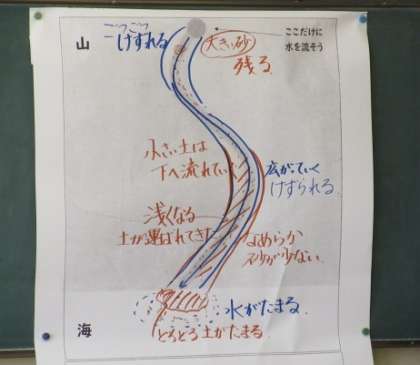 山
ごつごつ
けずれる
大きい砂
残る
ここだけに
水を流そう
小さい土は
下へ流れていく
広がっていく
けずられる
浅くなる
土が運ばれてきた
なめらか
砂が少ない
水がたまる
海
どろどろ土がたまる